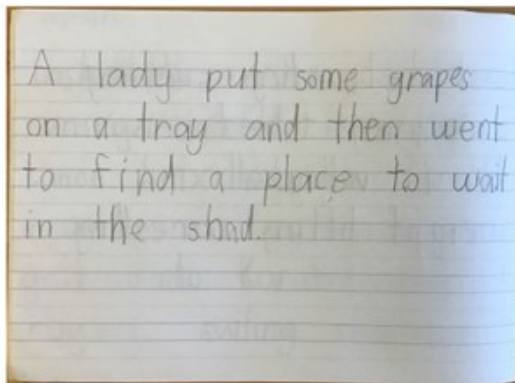 A lady put some grapes
on a tray and then went
to find a place to wait
in the shad.